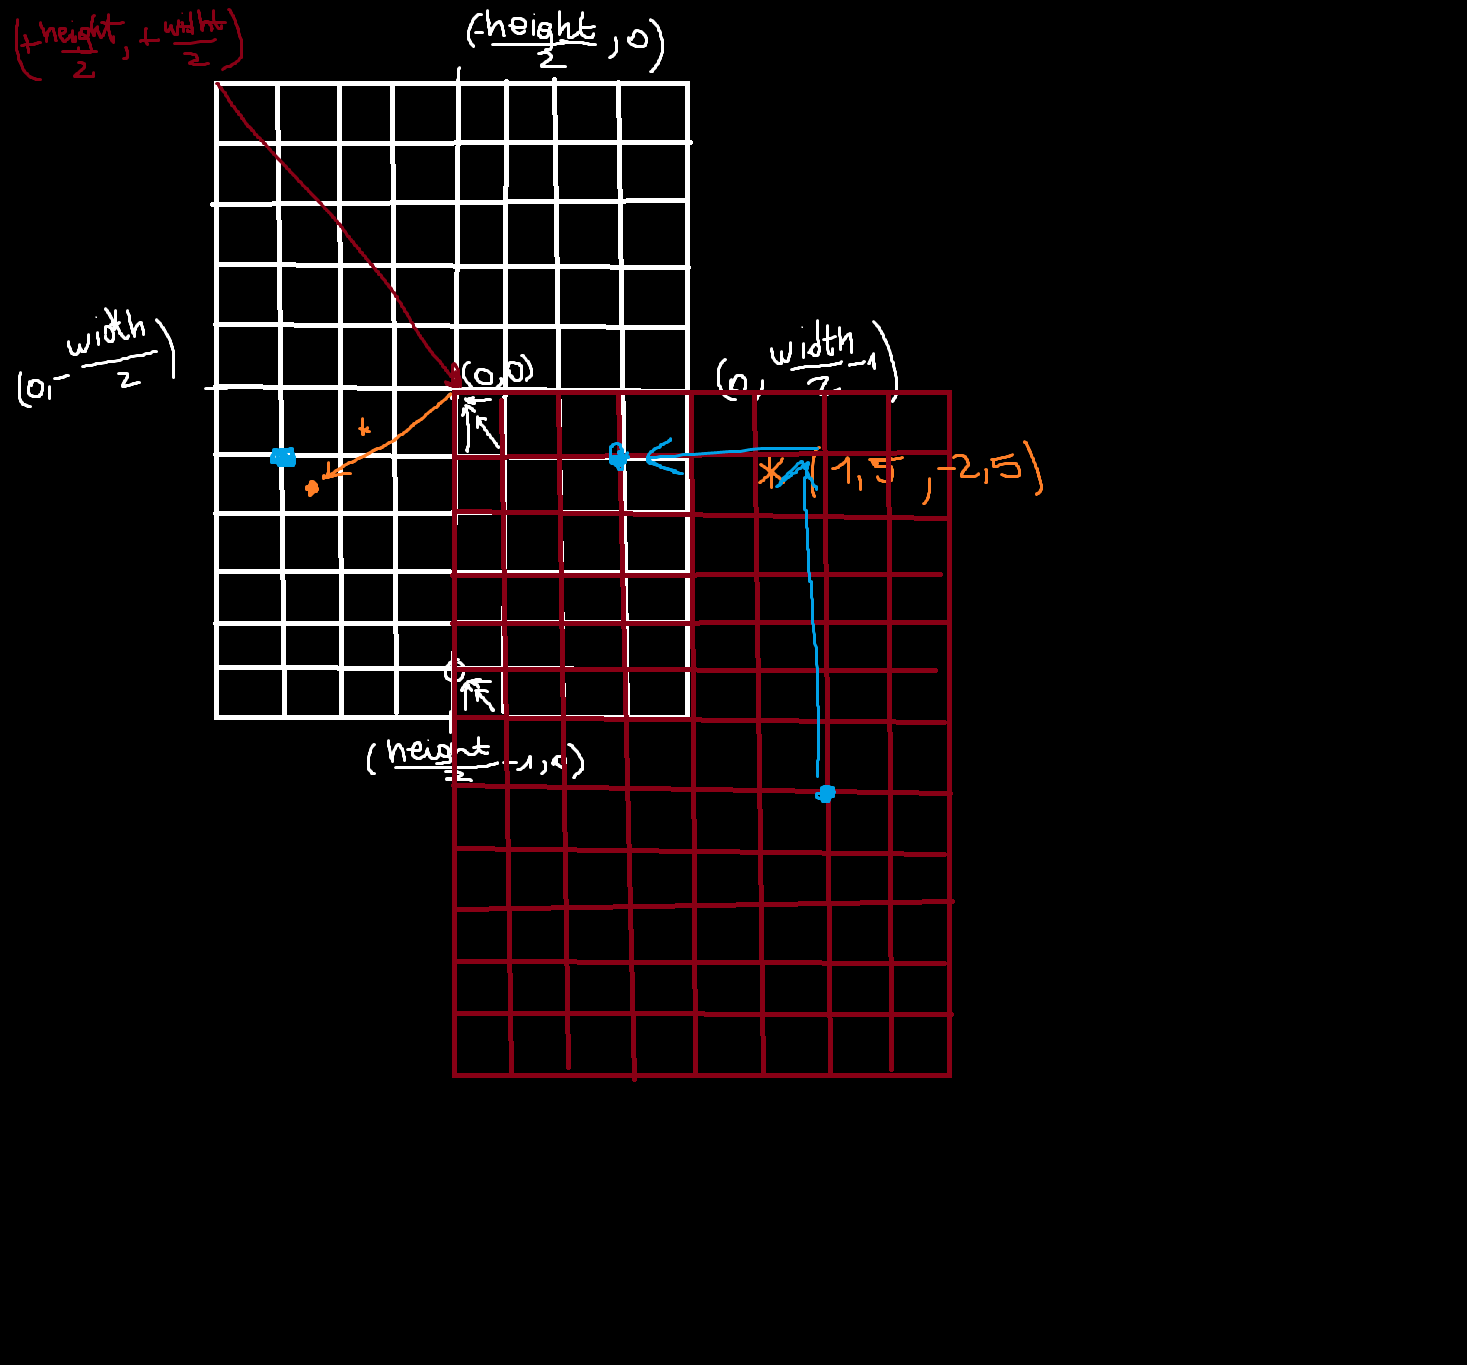 (+height/2, +widht/2)
(-height/2, 0)
(0, -width/2)
(0,0)
(0, width/2 -1)
*
* (1,5 ,-2,5)
(height/2 -1, 0)